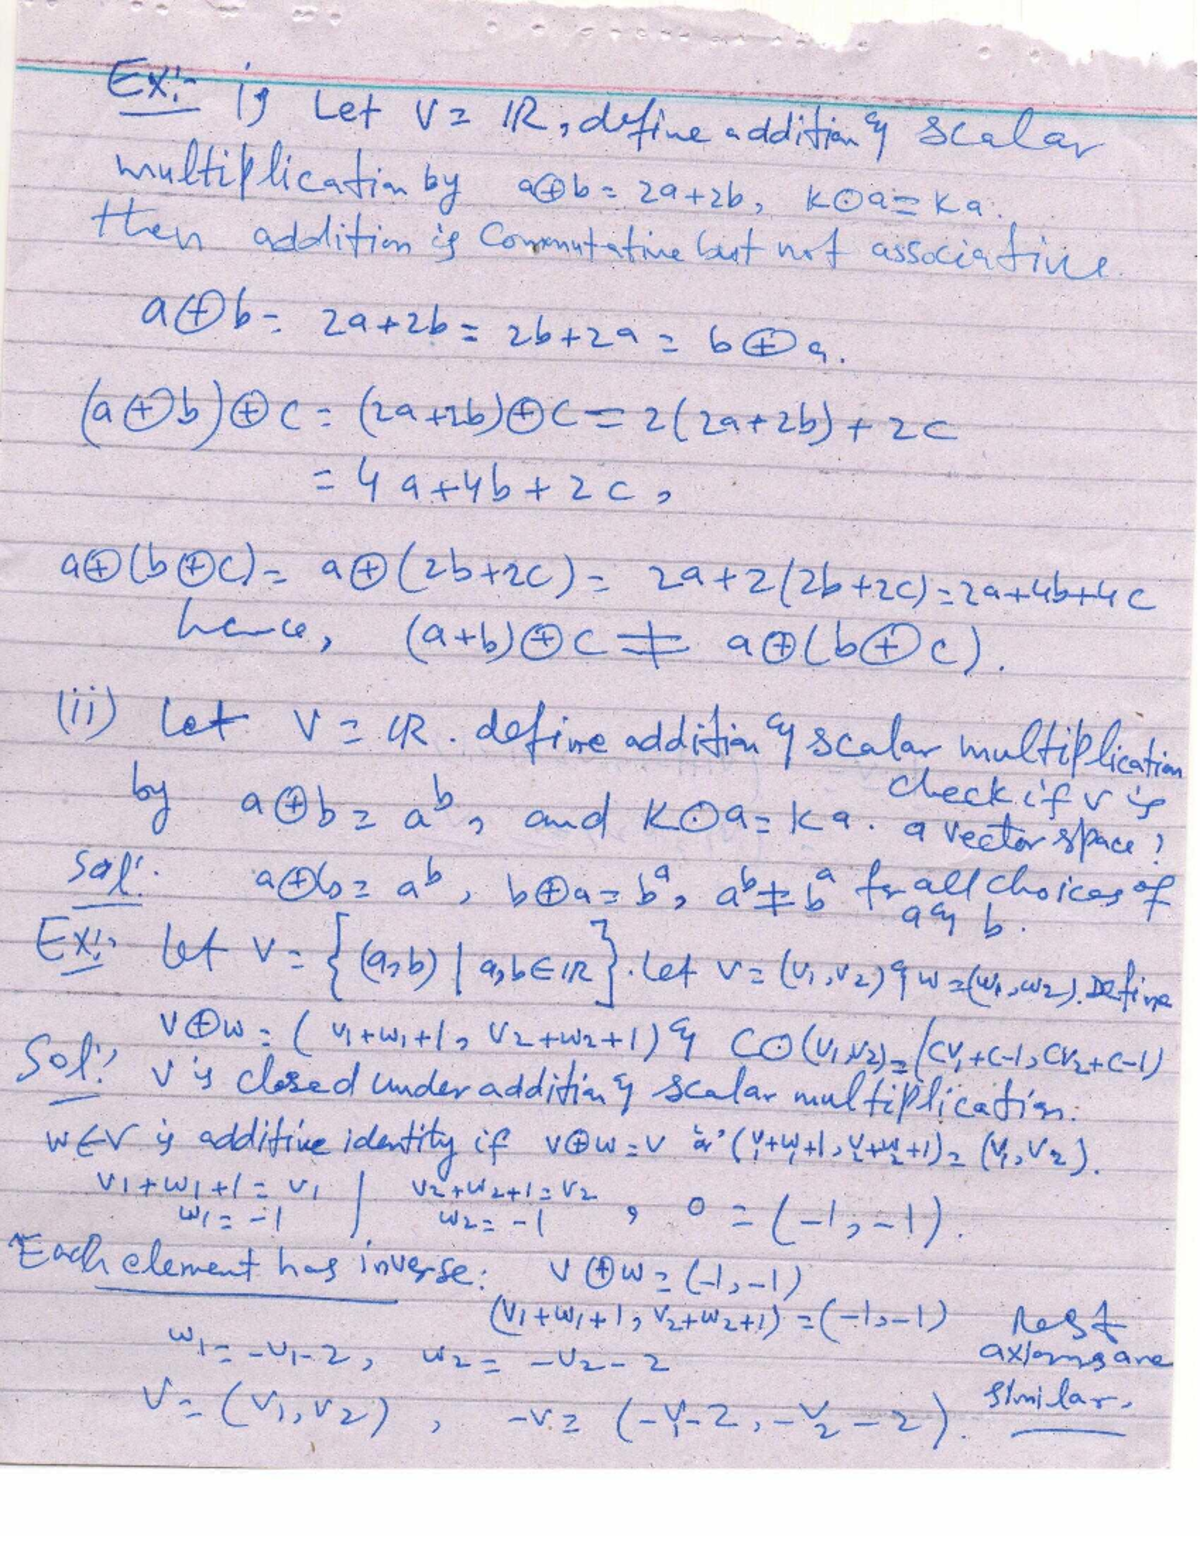 Ex:- i) Let V = ℝ, define addition & scalar
multiplication by a⊕b = 2a+2b, k⊙a = ka.
then addition is commutative but not associative.
a⊕b = 2a+2b = 2b+2a = b⊕a.
(a⊕b)⊕c = (2a+2b)⊕c = 2(2a+2b)+2c
= 4a+4b+2c,
a⊕(b⊕c) = a⊕(2b+2c) = 2a+2(2b+2c) = 2a+4b+4c
hence, (a+b)⊕c ≠ a⊕(b⊕c).
(ii) Let V = ℝ. define addition & scalar multiplication
by a⊕b = a^b, and k⊙a = ka. check if V is
a vector space?
Sol:. a⊕b = a^b, b⊕a = b^a, a^b ≠ b^a for all choices of
a & b.
Ex:- Let V = {(a,b) | a,b∈ℝ}. Let v = (v₁,v₂) & w = (w₁,w₂). Define
v⊕w = (v₁+w₁+1, v₂+w₂+1) & c⊙(v₁,v₂) = (cv₁+c-1, cv₂+c-1)
Sol: V is closed under addition & scalar multiplication.
w∈V is additive identity if v⊕w = v or (v₁+w₁+1, v₂+w₂+1) = (v₁,v₂).
v₁+w₁+1 = v₁ | v₂+w₂+1 = v₂
w₁ = -1 | w₂ = -1 , 0 = (-1,-1).
Each element has inverse: v⊕w = (-1,-1)
(v₁+w₁+1, v₂+w₂+1) = (-1,-1)
w₁ = -v₁-2, w₂ = -v₂-2
v = (v₁,v₂), -v = (-v₁-2, -v₂-2).
Rest
axioms are
similar.